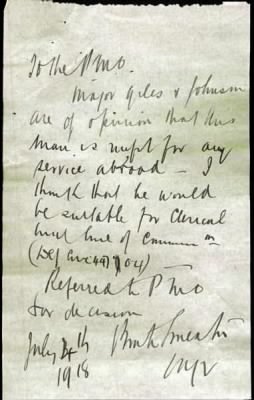 To the PMO.
Major Giles & Johnson
are of opinion that this
man is unfit for any
service abroad – I
think that he would
be suitable for Clerical
line of
Referred to PMO
for decision
July 4th
1918